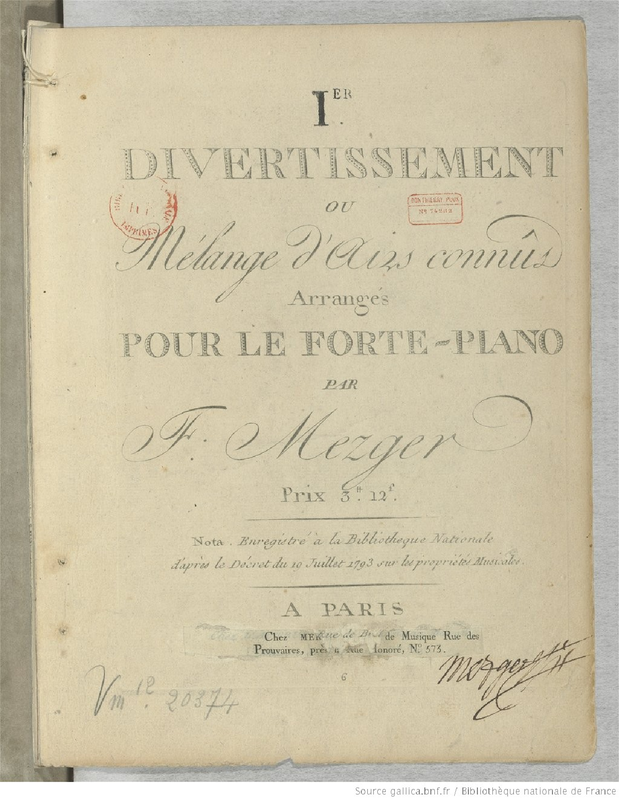 I.ER
DIVERTISSEMENT
OU
Mélange d'Airs connûs
Arrangés
POUR LE FORTE-PIANO
PAR
F. Mezger
Prix 3.tt 12.s
Nota. Enregistré à la Bibliotheque Nationale
d'après le Décret du 19 Juillet 1793 sur les propriétés Musicales.
A PARIS
Chez de Musique Rue des
Prouvaires, près Rue honoré, No. 573.
Mezger
6
Vm 12. 20374
Source gallica.bnf.fr / Bibliothèque nationale de France